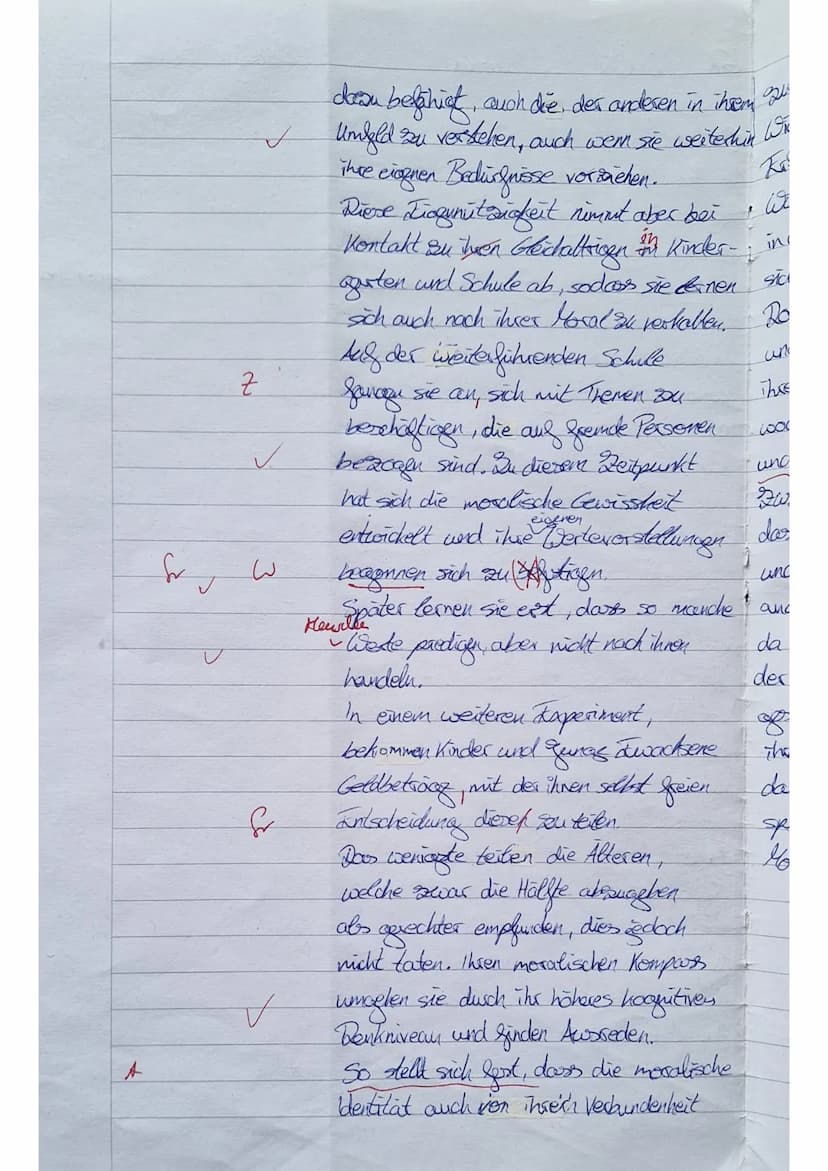 dazu befähigt, auch die, der anderen in ihrem
✓ Umfeld zu verstehen, auch wenn sie weiterhin
ihre eignen Bedürfnisse vorziehen.
Diese Eigenützigkeit nimmt aber bei
Kontakt zu ihren Gleichaltrigen in Kinder-
garten und Schule ab, sodass sie lernen
sich auch nach ihrer Moral zu verhalten.
Auf der weiterführenden Schule
Z fangen sie an, sich mit Themen zu
beschäftigen, die auf fremde Personen
✓ bezogen sind. Zu diesem Zeitpunkt
hat sich die moralische Gewissheit
eigenen
entwickelt und ihre Wertevorstellungen
Gr ✓ W beginnen sich zu festigen.
Später lernen sie erst, dass so manche
Menschen
✓ Werte predigen, aber nicht nach ihnen
handeln.
In einem weiteren Experiment,
bekommen Kinder und junge Erwachsene
Geldbeträge, mit der ihnen selbst freien
Gr Entscheidung diese zu teilen.
Das wenigste teilen die Älteren,
welche zwar die Hälfte abzugeben
als gerechter empfunden, dies jedoch
nicht taten. Ihren moralischen Kompass
✓ umgehen sie durch ihr höheres kognitives
Denkniveau und finden Ausreden.
A So stellt sich fest, dass die moralische
Identität auch von ihrer Verbundenheit